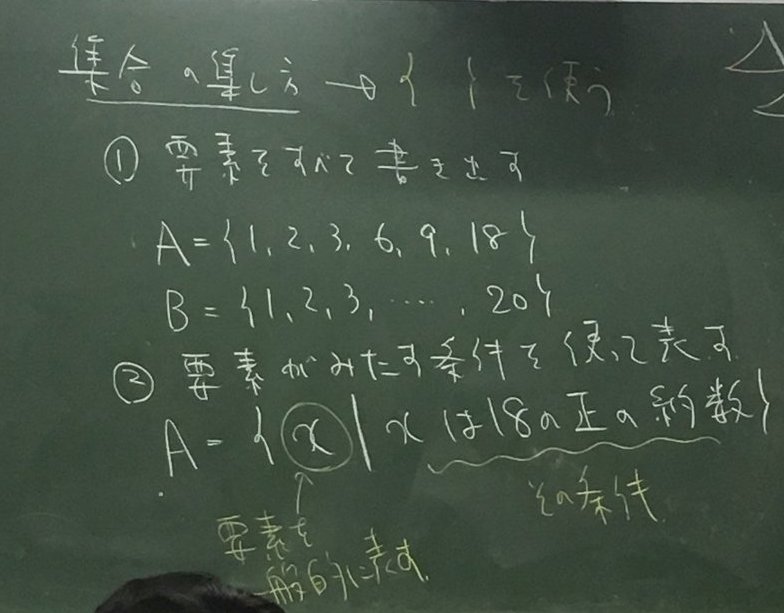 集合の集し方 → { } を使う
① 要素をすべて書き出す
A = {1, 2, 3, 6, 9, 18}
B = {1, 2, 3, ‥‥, 20}
② 要素がみたす条件を使って表す
A = { x | x は18の正の約数}
その条件
要素を
一般的に表す.